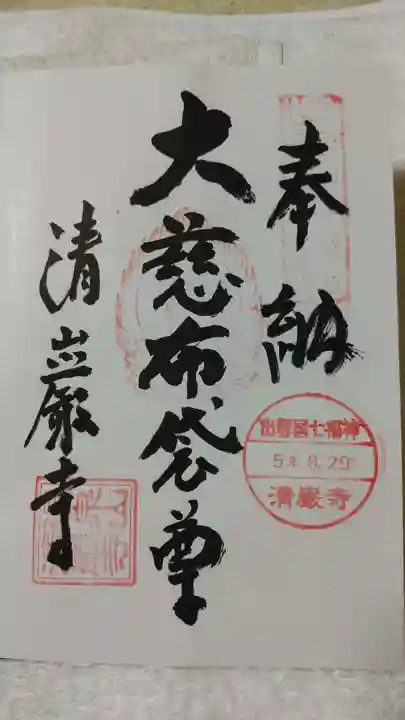 奉納
大慈布袋尊
清巌寺
出雲国七福神
5年8.29
清巌寺